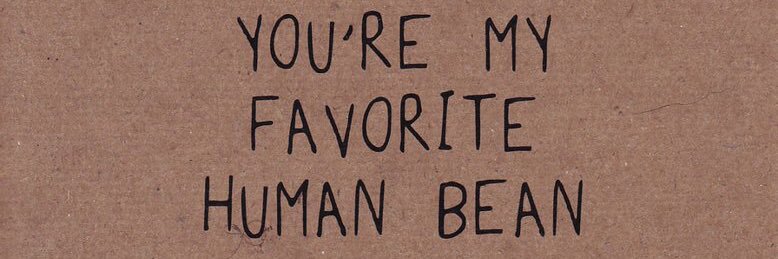 YOU'RE MY
FAVORITE
HUMAN BEAN